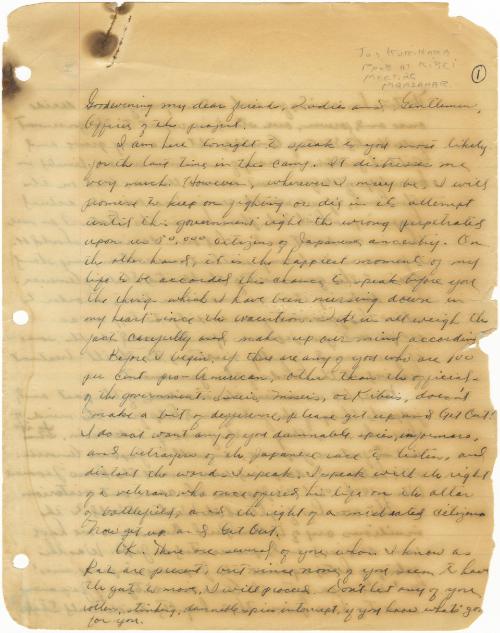 Joe Kurihara
Manzanar
Meeting
1
Goodevening my dear friends, Ladies and Gentlemen,
Officers of the project.
I am here tonight to speak to you most likely
for the last time in this camp. It distresses me
very much. However, wherever I may be I will
promise to keep on fighting or die in its attempt
until this government right the wrong perpetrated
upon us 80,000 citizens of Japanese ancestry. On
the other hand, it is the happiest moment of my
life to be accorded this chance to speak before you
the things which I have been nursing down in
my heart since the evacuation. Let us all weigh the
fact carefully and make up our mind according.
Before I begin, if there are any of you who are 100
per cent pro-American, other than the officials
of the government, Isseis, Niseis, or Kibeis, doesn't
make a bit of difference, please get up and Get Out!
I do not want any of you damnable spies, informers,
and betrayers of the Japanese race to listen, and
distort the words I speak. I speak with the right
of a veteran who once offered his life on the altar
of battlefield, and the right of a citizen.
Now get up and Get Out.
Oh. There are several of you whom I know as
Rats are present, but since none of you seem to have
the guts to move, I will proceed. Don't let any of you
rotten, stinking, damnable spies interrupt, if you know what's good
for you.